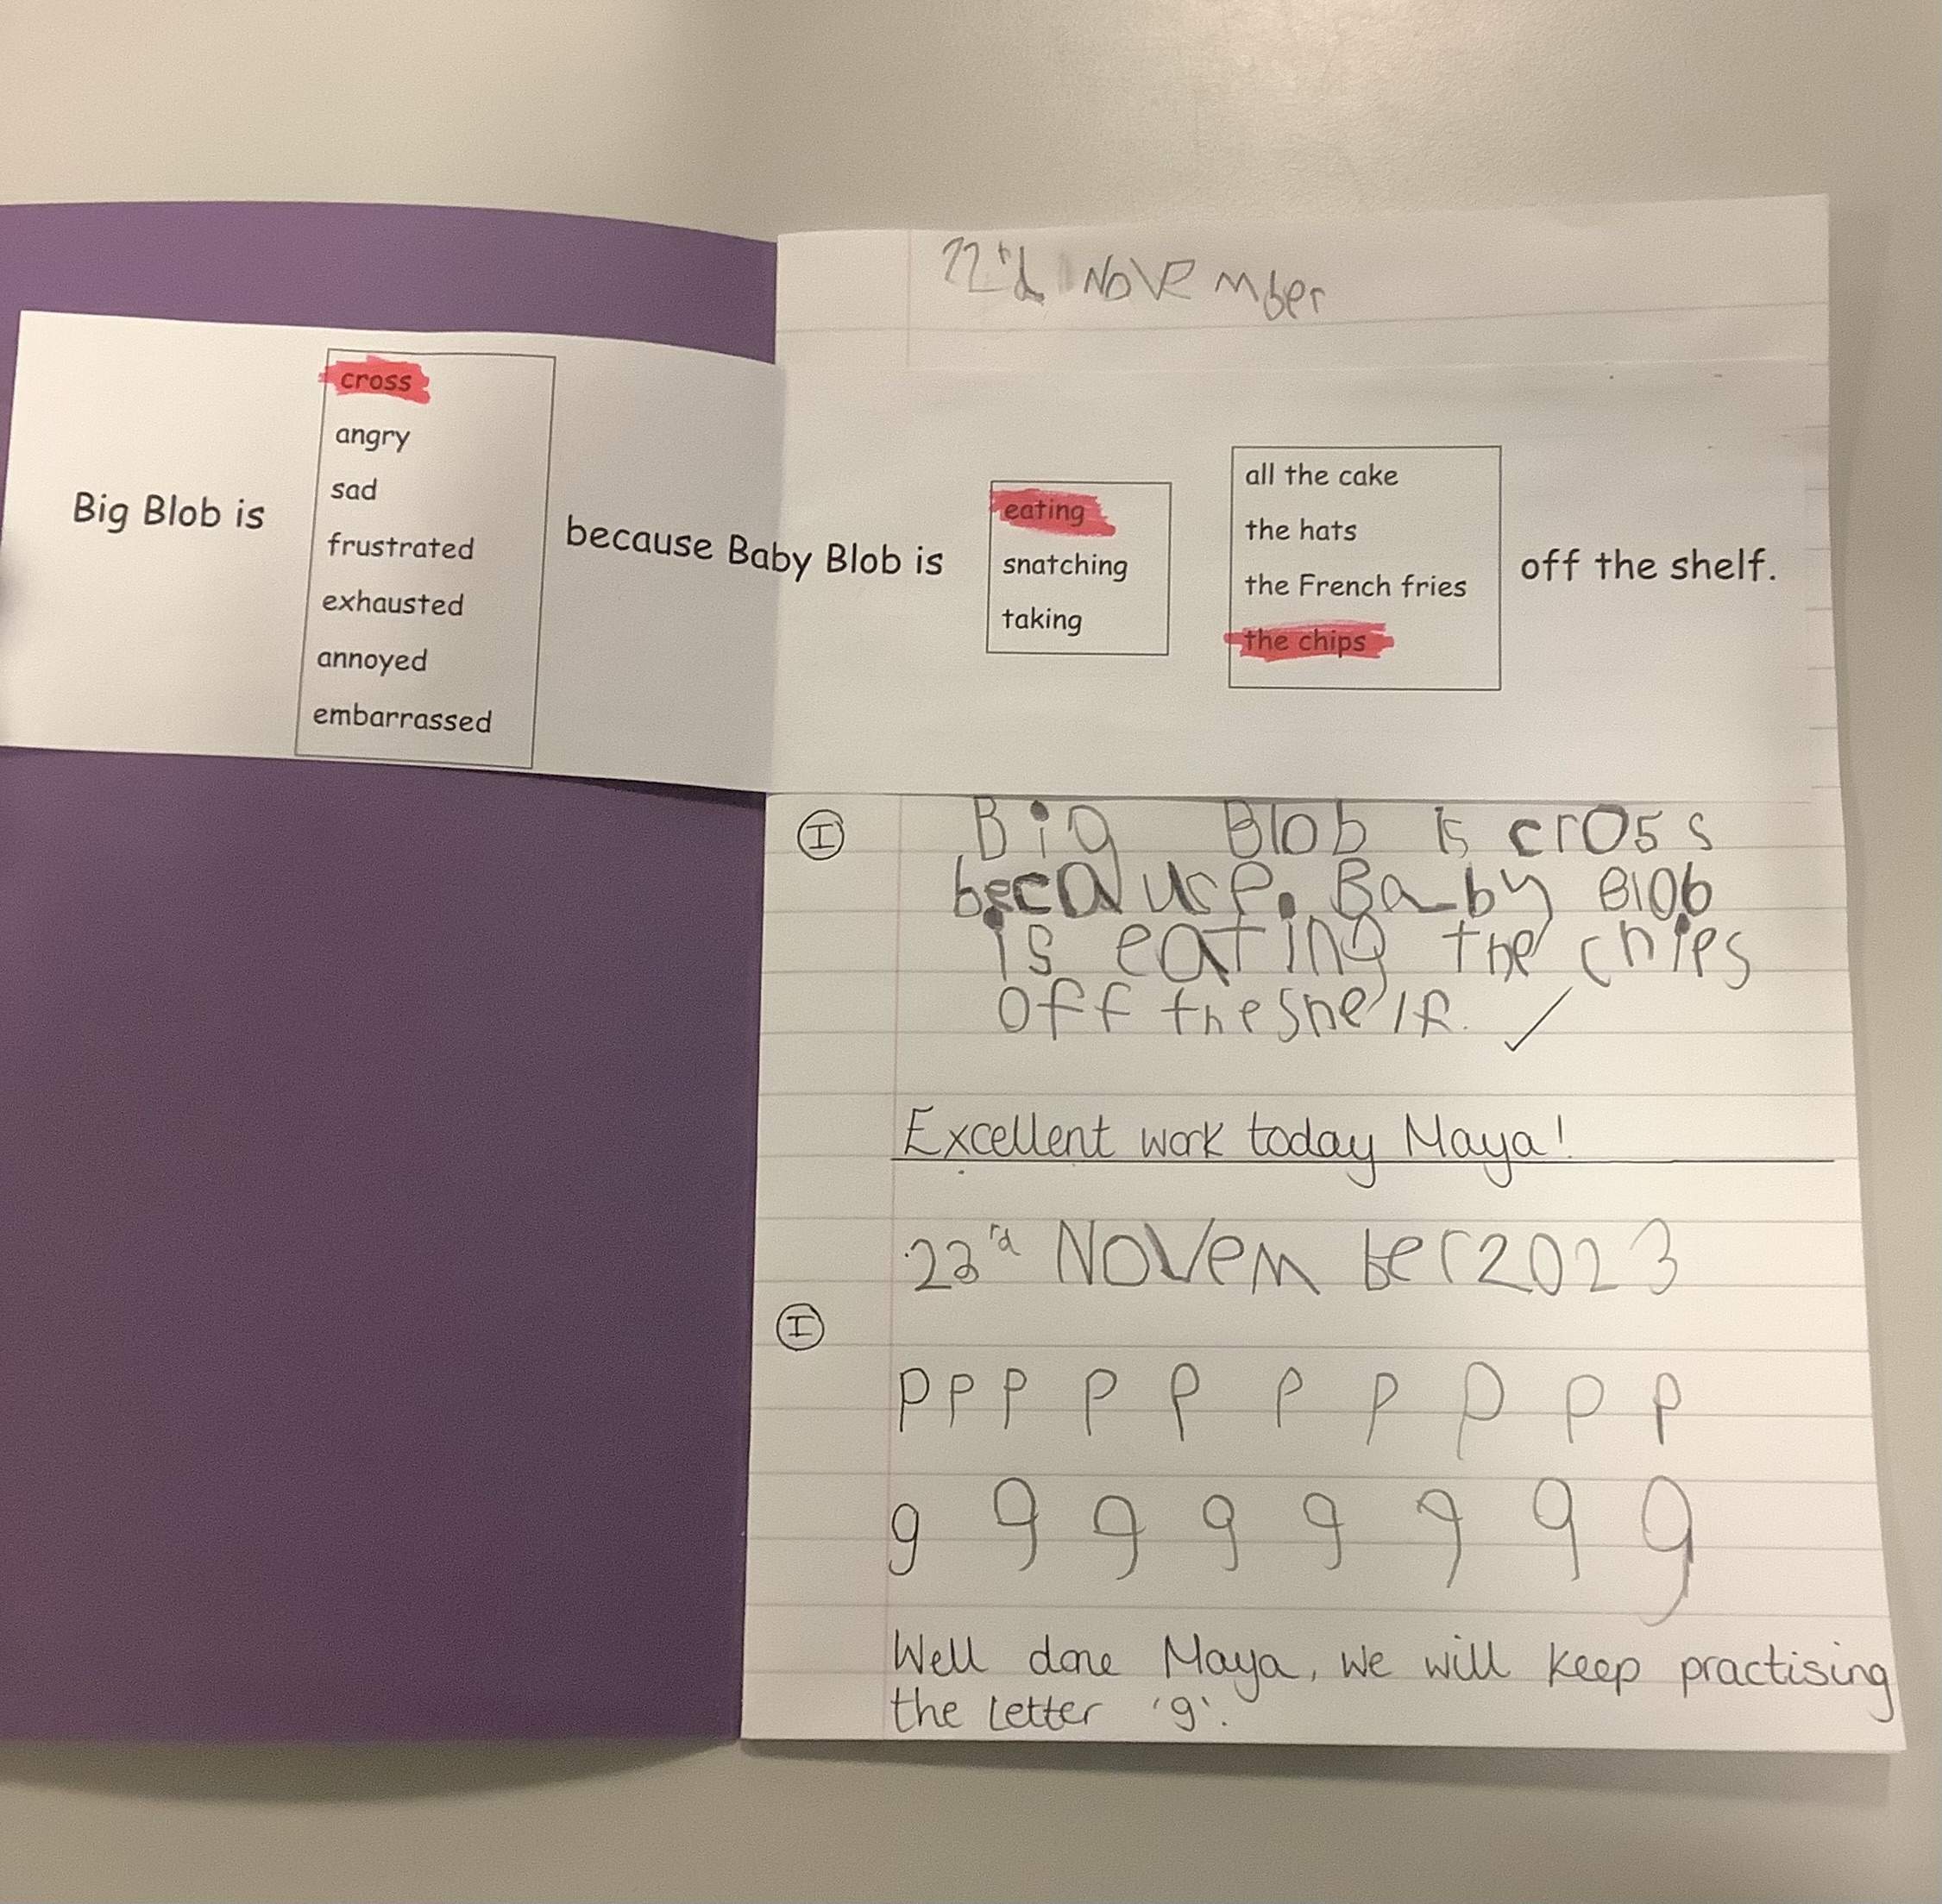 22rd November
cross
angry
sad
Big Blob is
frustrated
exhausted
annoyed
embarrassed
because Baby Blob is
eating
snatching
taking
all the cake
the hats
the French fries
the chips
off the shelf.
I
Big Blob is cross
because. Baby Blob
is eating the chips
off the shelf.
Excellent work today Maya!
23rd November 2023
I
p p p p p p p p p p
g g g g g g g g
Well done Maya, we will keep practising
the letter 'g'.